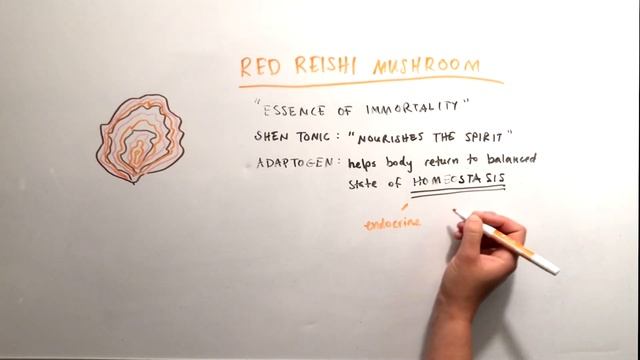 RED REISHI MUSHROOM
"ESSENCE OF IMMORTALITY"
SHEN TONIC: "NOURISHES THE SPIRIT"
ADAPTOGEN: helps body return to balanced
state of HOMEOSTASIS
endocrine